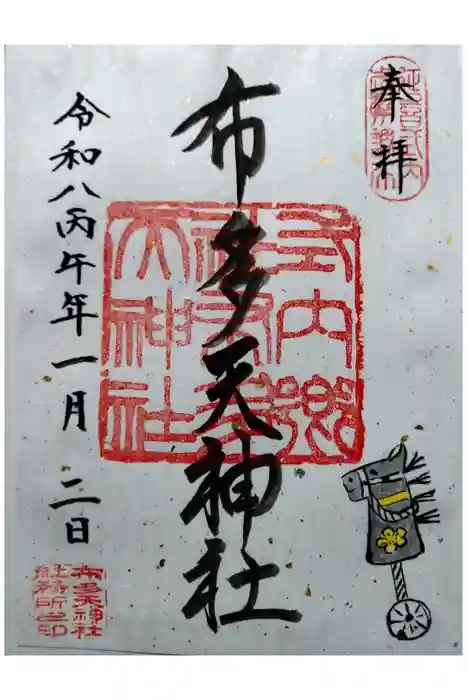 奉拝
布多天神社
令和八丙午年一月二日
布多天神社
社務所之印